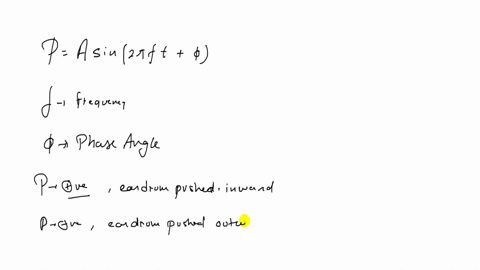 P = A sin(2πft + φ)
f → frequency
φ → Phase Angle
P → ⊕ve, eardrum pushed inward
P → ⊖ve, eardrum pushed outw